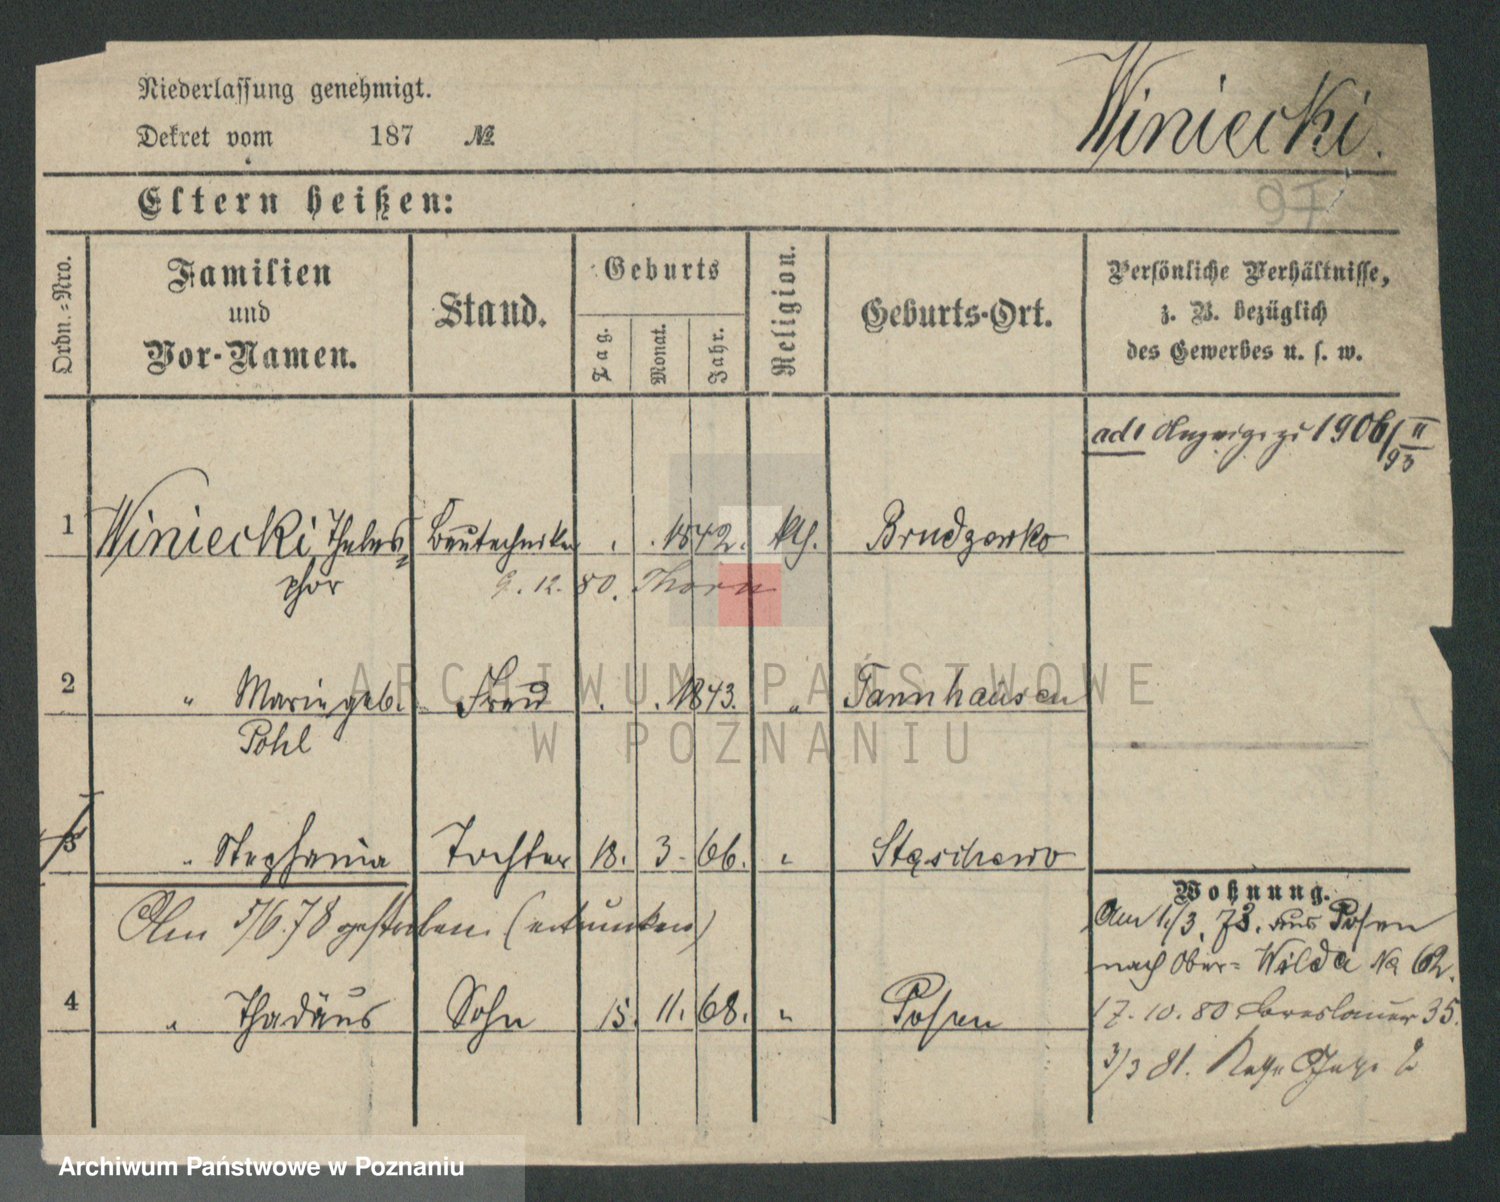 Niederlassung genehmigt.
Dekret vom 187 №
Winiecki.
97
Eltern heißen:
Ordn.-Nro.
Familien und Vor-Namen.
Stand.
Geburts
Tag. Monat. Jahr.
Religion.
Geburts-Ort.
Persönliche Verhältnisse,
z. B. bezüglich
des Gewerbes u. s. w.
ad 1 1906/II 93
1 Winiecki, Theles= Bautechniker 1842. kth. Brudzewko
phor
9. 12. 80. Thorn
2 " Marie geb. Frau 1843. " Tannhausen
Pohl
ARCHIWUM PAŃSTWOWE
W POZNANIU
3 " Stephania Tochter 18. 3. 66. "
Am 5/6. 78 gestorben. (ertrunken)
Wohnung.
Am 1./3. 78. aus Posen
nach Ober= Wilda No 62.
4 " Thadäus Sohn 15. 11. 68. " Posen
17. 10. 80 Breslauer 35.
3/3 81.
Archiwum Państwowe w Poznaniu